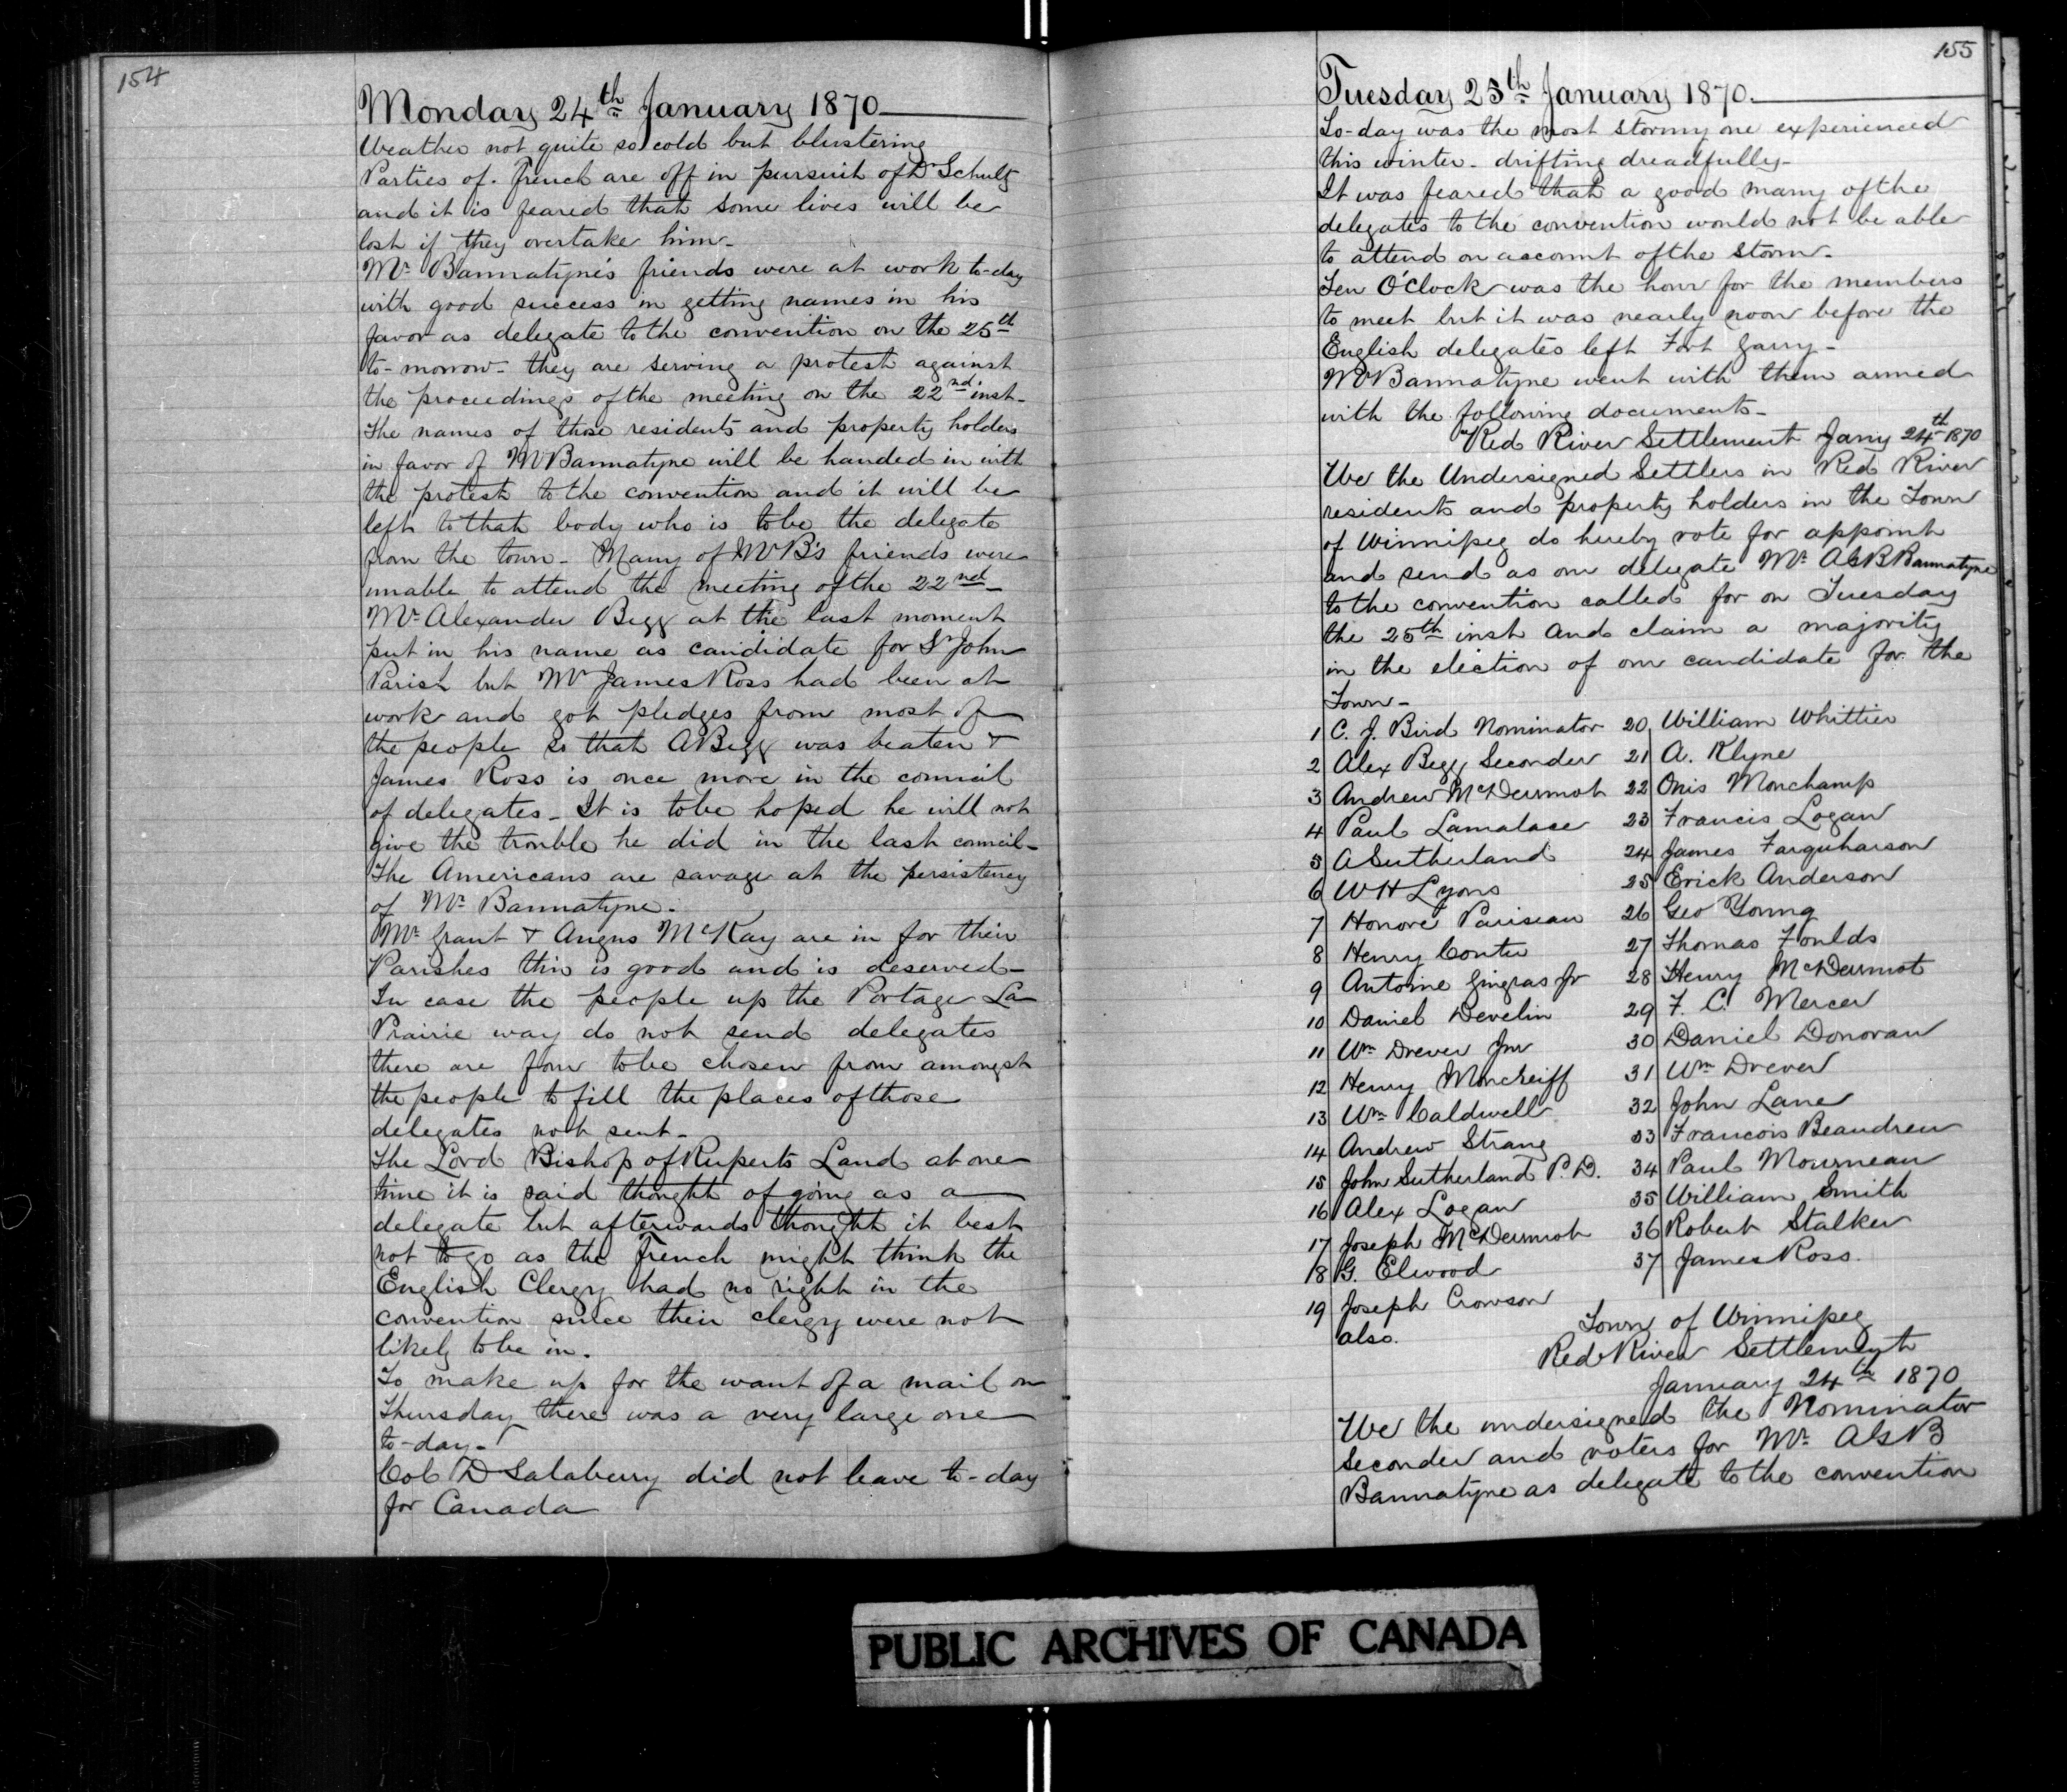 154
Monday 24th January 1870
Weather not quite so cold but blustering
Parties of French are off in pursuit of Dr Schultz
and it is feared that some lives will be
lost if they overtake him-
Mr Bannatyne's friends were at work to-day
with good success in getting names in his
favor as delegate to the convention on the 25th
to-morrow- they are serving a protest against
the proceedings of the meeting on the 22nd inst-
The names of those residents and property holders
in favor of Mr Bannatyne will be handed in with
the protest to the convention and it will be
left to that body who is to be the delegate
from the town- Many of Mr B's friends were
unable to attend the meeting of the 22nd-
Mr Alexander Begg at the last moment
put in his name as candidate for St John
Parish but Mr James Ross had been at
work and got pledges from most of
the people so that A Begg was beaten &
James Ross is once more in the council
of delegates- It is to be hoped he will not
give the trouble he did in the last council-
The Americans are savage at the persistency
of Mr Bannatyne.
Mr Grant & Angus McKay are in for their
Parishes this is good and is deserved-
In case the people up the Portage La
Prairie way do not send delegates
there are four to be chosen from amongst
the people to fill the places of those
delegates not sent-
The Lord Bishop of Ruperts Land at one
time it is said thought of going as a
delegate but afterwards thought it best
not to go as the French might think the
English Clergy had no right in the
convention since their clergy were not
likely to be in.
To make up for the want of a mail on
Thursday there was a very large one
to-day-
Col D Salaberry did not leave to-day
for Canada
155
Tuesday 25th January 1870.
To-day was the most stormy one experienced
this winter- drifting dreadfully-
It was feared that a good many of the
delegates to the convention would not be able
to attend on account of the storm-
Ten O'Clock was the hour for the members
to meet but it was nearly noon before the
English delegates left Fort Garry-
Mr Bannatyne went with them armed
with the following documents-
"Red River Settlement Jany 24th 1870
We the Undersigned Settlers in Red River
residents and property holders in the Town
of Winnipeg do hereby vote for appoint
and send as our delegate Mr AGB Bannatyne
to the convention called for on Tuesday
the 25th inst and claim a majority
in the election of our candidate for the
Town-
1 C. J. Bird Nominator 20 William Whittier
2 Alex Begg Seconder 21 A. Klyne
3 Andrew McDermot 22 Onis Monchamp
4 Paul Lamalace 23 Francis Logan
5 A Sutherland 24 James Farquharson
6 W H Lyons 25 Erick Anderson
7 Honore Pariseau 26 Geo Young
8 Henry Coutu 27 Thomas Foulds
9 Antoine Gingras Jr 28 Henry McDermot
10 Daniel Develin 29 F. C. Mercer
11 Wm Drever Jnr 30 Daniel Donovan
12 Henry Moncreiff 31 Wm Drever
13 Wm Caldwell 32 John Lane
14 Andrew Strang 33 Francois Beaudreu
15 John Sutherland P. D. 34 Paul Mourneau
16 Alex Logan 35 William Smith
17 Joseph McDermot 36 Robert Stalker
18 G. Elwood 37 James Ross.
19 Joseph Crowson
also.
Town of Winnipeg
Red River Settlement
January 24th 1870
We the undersigned the Nominator
Seconder and voters for Mr AGB
Bannatyne as delegate to the convention
PUBLIC ARCHIVES OF CANADA